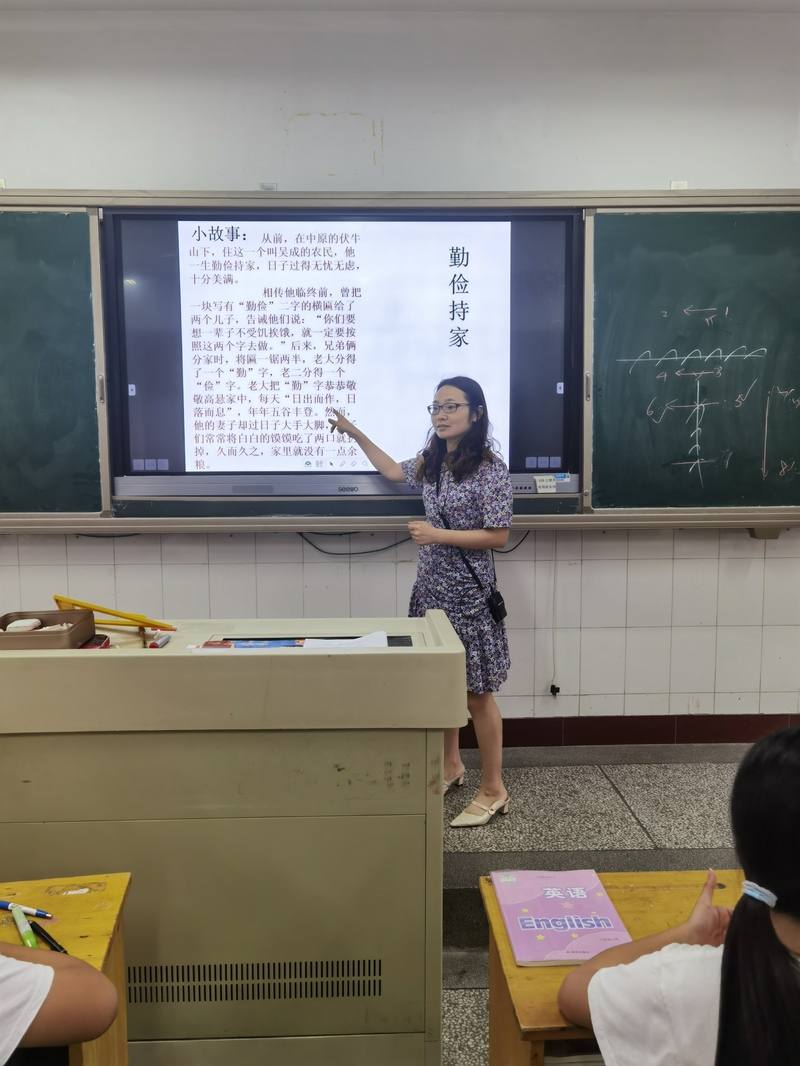 小故事： 从前，在中原的伏牛
山下，住这一个叫吴成的农民，他
一生勤俭持家，日子过得无忧无虑，
十分美满。
相传他临终前，曾把
一块写有“勤俭”二字的横匾给了
两个儿子，告诫他们说：“你们要
想一辈子不受饥挨饿，就一定要按
照这两个字去做。”后来，兄弟俩
分家时，将匾一锯两半，老大分得
了一个“勤”字，老二分得一个
“俭”字。老大把“勤”字恭恭敬
敬高悬家中，每天“日出而作，日
落而息”，年年五谷丰登。然而，
他的妻子却过日子大手大脚，
们常常将白白的馍馍吃了两口就
掉，久而久之，家里就没有一点余
粮。
勤俭持家
seewo
2 1
4 3
6 5
英语
English